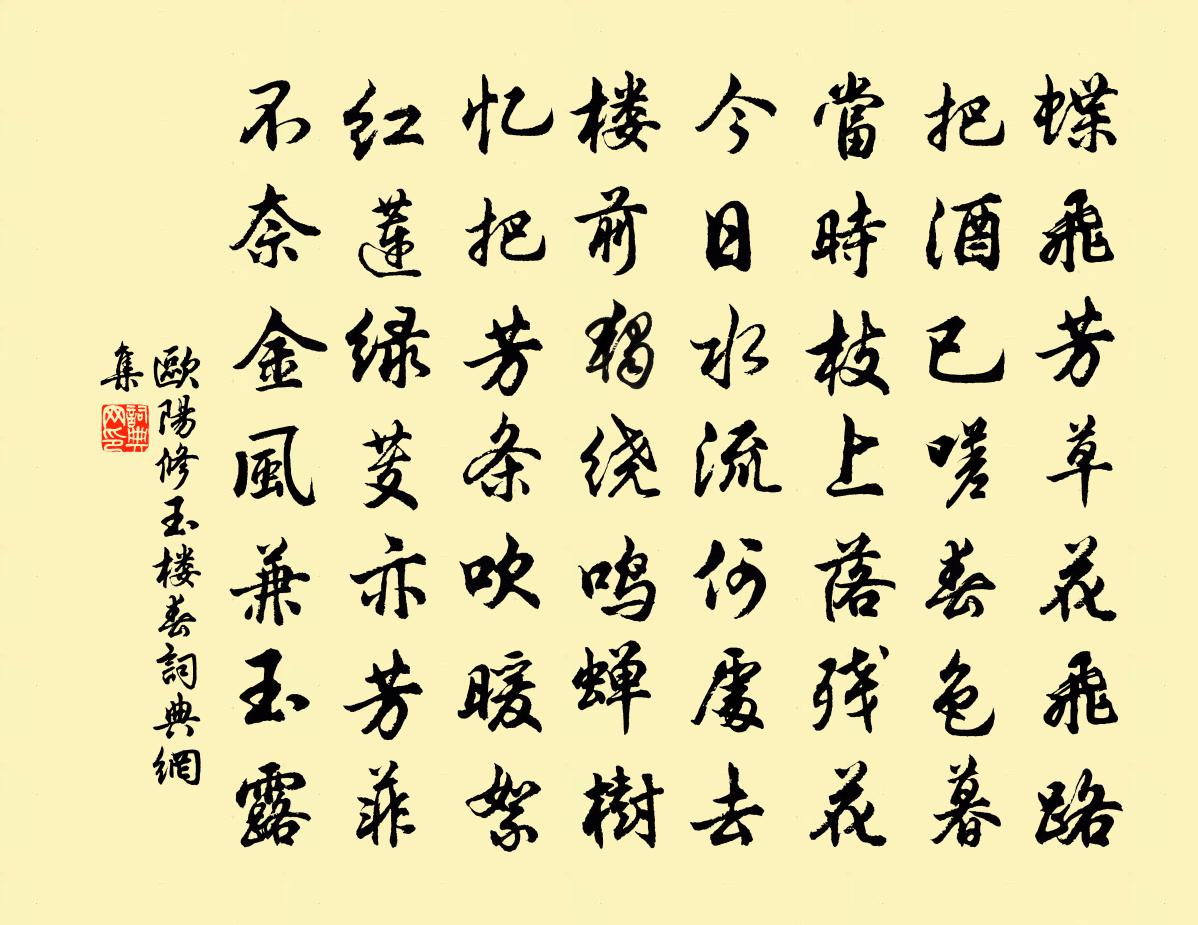 蝶飛芳草花飛路
把酒已嗟春色暮
當時枝上落残花
今日水流何處去
楼前独绕鸣蝉樹
忆把芳条吹暖絮
红蓮绿芰亦芳菲
不奈金風兼玉露
歐陽修玉楼春詞典網
集
詞典
网印